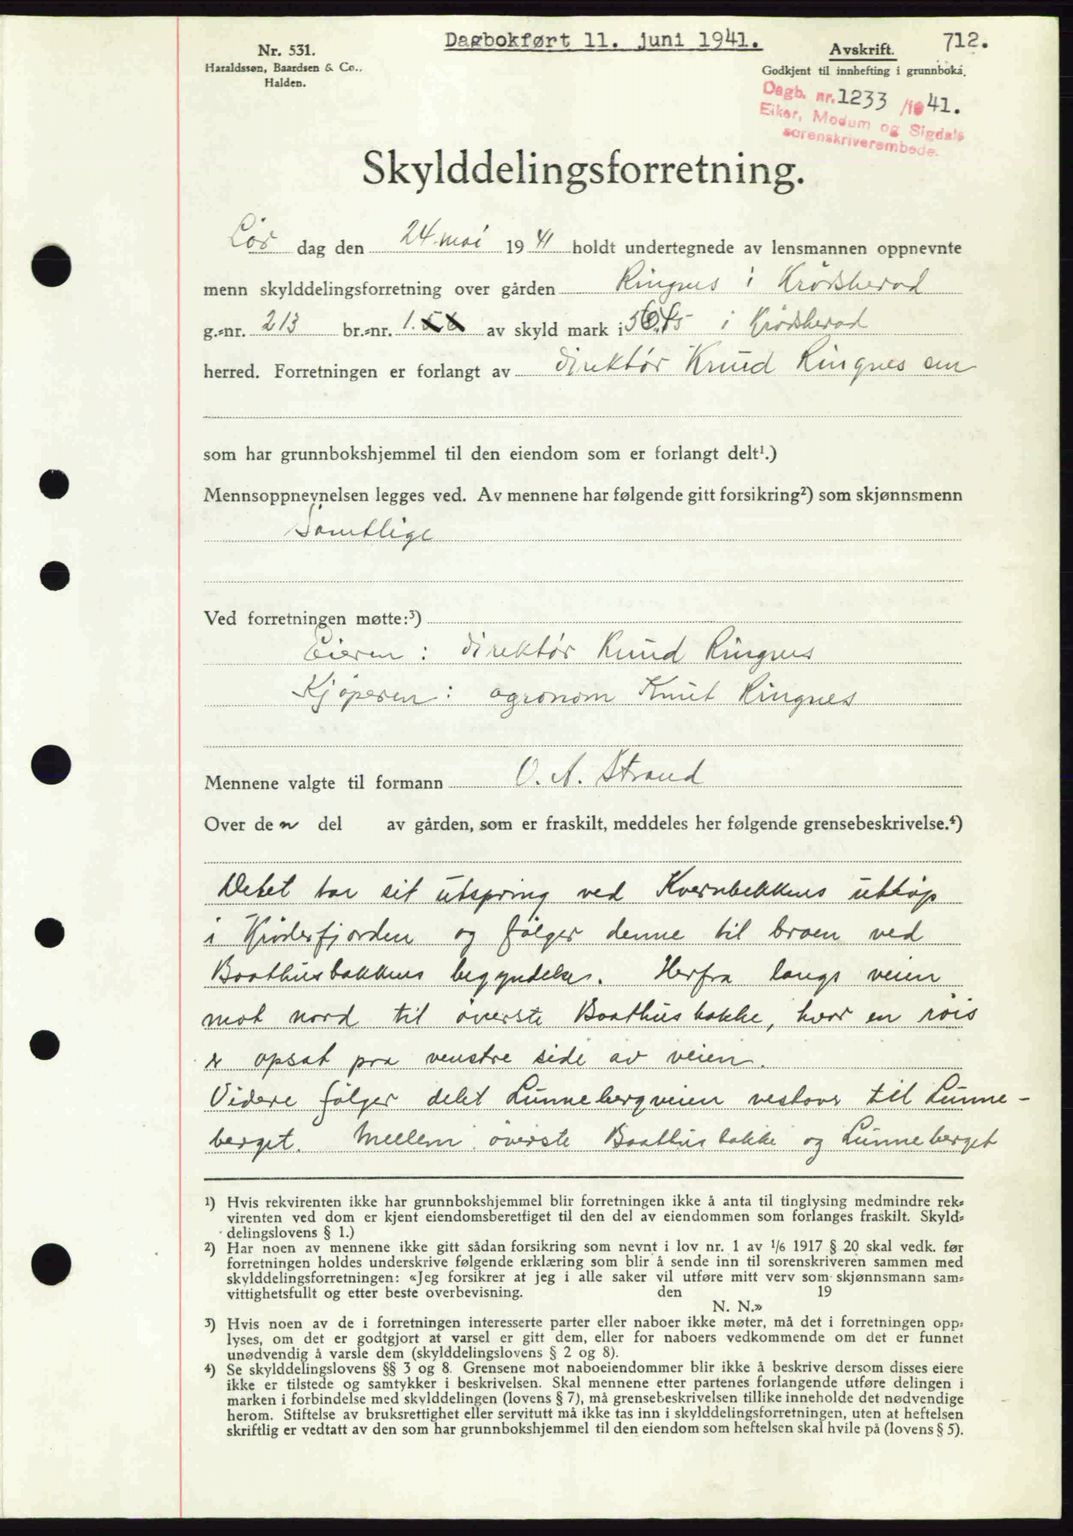 Dagbokført 11. juni 1941.
712.
Nr. 531.
Haraldssøn, Baardsen & Co..
Halden.
Avskrift.
Godkjent til innhefting i grunnboka.
Dagb. nr. 1233 /1941.
Eiker, Modum og Sigdals
sorenskriverembede.
Skylddelingsforretning.
Lør dag den 24. mai 19 41 holdt undertegnede av lensmannen oppnevnte
menn skylddelingsforretning over gården Ringnes i Krødsherad
g.-nr. 213 br.-nr. 1. av skyld mark i Krødsherad
herred. Forretningen er forlangt av direktør Knud Ringnes sen
som har grunnbokshjemmel til den eiendom som er forlangt delt¹.)
Mennsoppnevnelsen legges ved. Av mennene har følgende gitt forsikring²) som skjønnsmenn
Samtlige
Ved forretningen møtte:³)
Eieren: direktør Knud Ringnes
Kjøperen: agronom Knut Ringnes
Mennene valgte til formann O. A. Strand
Over den del av gården, som er fraskilt, meddeles her følgende grensebeskrivelse.⁴)
Delet tar sit utspring ved Kvernbekkens utløp
i Krøderfjorden og følger denne til broen ved
Baathusbakkens begyndelse. Herfra langs veien
mot nord til øverste Baathusbakke, hvor en røis
er opsat paa venstre side av veien.
Videre følger delet Lunnebergveien vestover til Lunne-
berget. Mellem øverste Baathusbakke og Lunneberget
¹) Hvis rekvirenten ikke har grunnbokshjemmel blir forretningen ikke å anta til tinglysing medmindre rek-
virenten ved dom er kjent eiendomsberettiget til den del av eiendommen som forlanges fraskilt. Skyld-
delingslovens § 1.)
²) Har noen av mennene ikke gitt sådan forsikring som nevnt i lov nr. 1 av 1/6 1917 § 20 skal vedk. før
forretningen holdes underskrive følgende erklæring som blir å sende inn til sorenskriveren sammen med
skylddelingsforretningen: «Jeg forsikrer at jeg i alle saker vil utføre mitt verv som skjønnsmann sam-
vittighetsfullt og etter beste overbevisning. den 19
N. N.»
³) Hvis noen av de i forretningen interesserte parter eller naboer ikke møter, må det i forretningen opp-
lyses, om det er godtgjort at varsel er gitt dem, eller for naboers vedkommende om det er funnet
unødvendig å varsle dem (skylddelingslovens § 2 og 8).
⁴) Se skylddelingslovens §§ 3 og 8. Grensene mot naboeiendommer blir ikke å beskrive dersom disses eiere
ikke er tilstede og samtykker i beskrivelsen. Skal mennene etter partenes forlangende utføre delingen i
marken i forbindelse med skylddelingen (lovens § 7), må grensebeskrivelsen tillike inneholde det nødvendige
herom. Stiftelse av bruksrettighet eller servitutt må ikke tas inn i skylddelingsforretningen, uten at heftelsen
skriftlig er vedtatt av den som har grunnbokshjemmel til den eiendom som heftelsen skal hvile på (lovens § 5).